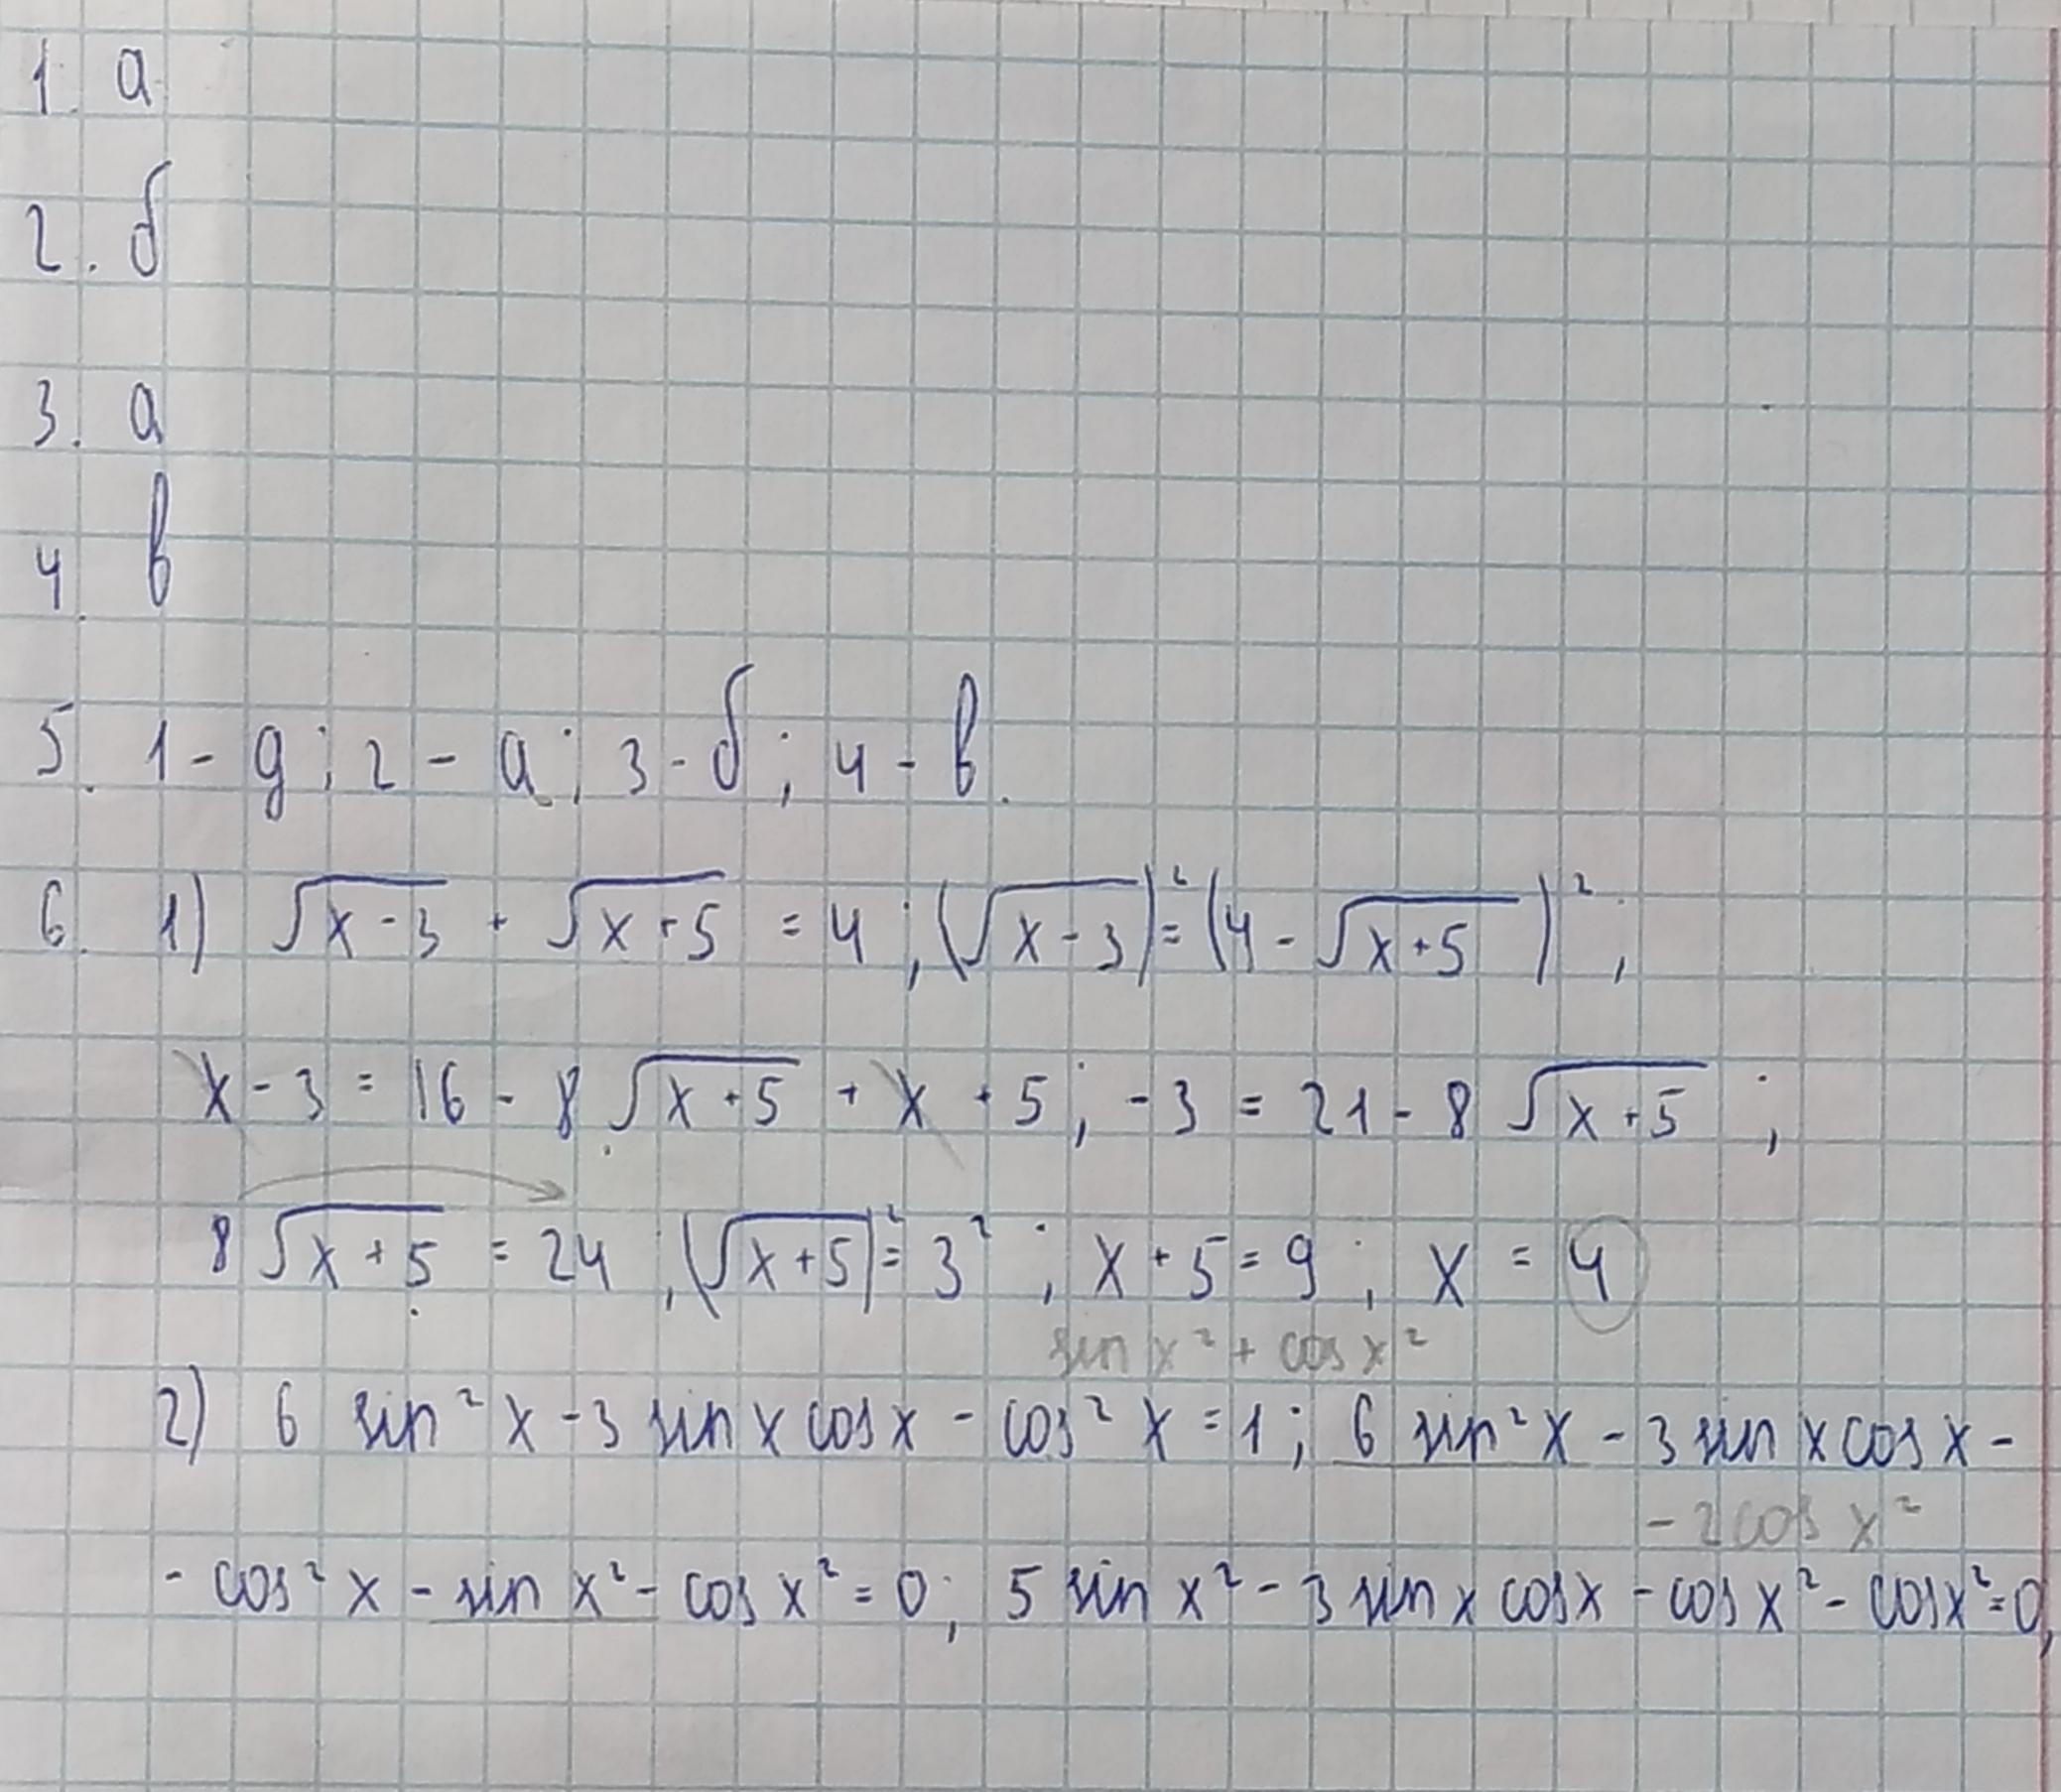 1. а
2. б
3. а
4. в
5. 1 - д; 2 - а; 3 - б; 4 - в.
6. 1) √(x-3) + √(x+5) = 4; (√(x-3))² = (4 - √(x+5))²;
x - 3 = 16 - 8√(x+5) + x + 5; -3 = 21 - 8√(x+5);
8√(x+5) = 24; (√(x+5))² = 3²; x + 5 = 9; x = 4
sin x² + cos x²
2) 6 sin² x - 3 sin x cos x - cos² x = 1; 6 sin² x - 3 sin x cos x -
- 2cos x²
- cos² x - sin x² - cos x² = 0; 5 sin x² - 3 sin x cos x - cos x² - cos x² = 0,